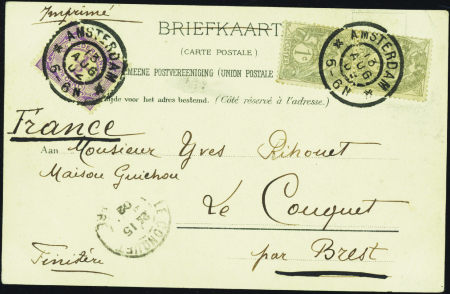 Imprimé
BRIEFKAART
(CARTE POSTALE)
ALGEMEENE POSTVEREENIGING (UNION POSTALE
Zijde voor het adres bestemd. (Côté réservé à l'adresse.)
AMSTERDAM
13
AUG
5-6N
AMSTERDAM
13
AUG
5-6N
France
Aan Monsieur Yves Rihouet
Maison Guichou
Le Conquet
par Brest
Finistère
LE CONQUET
15
02